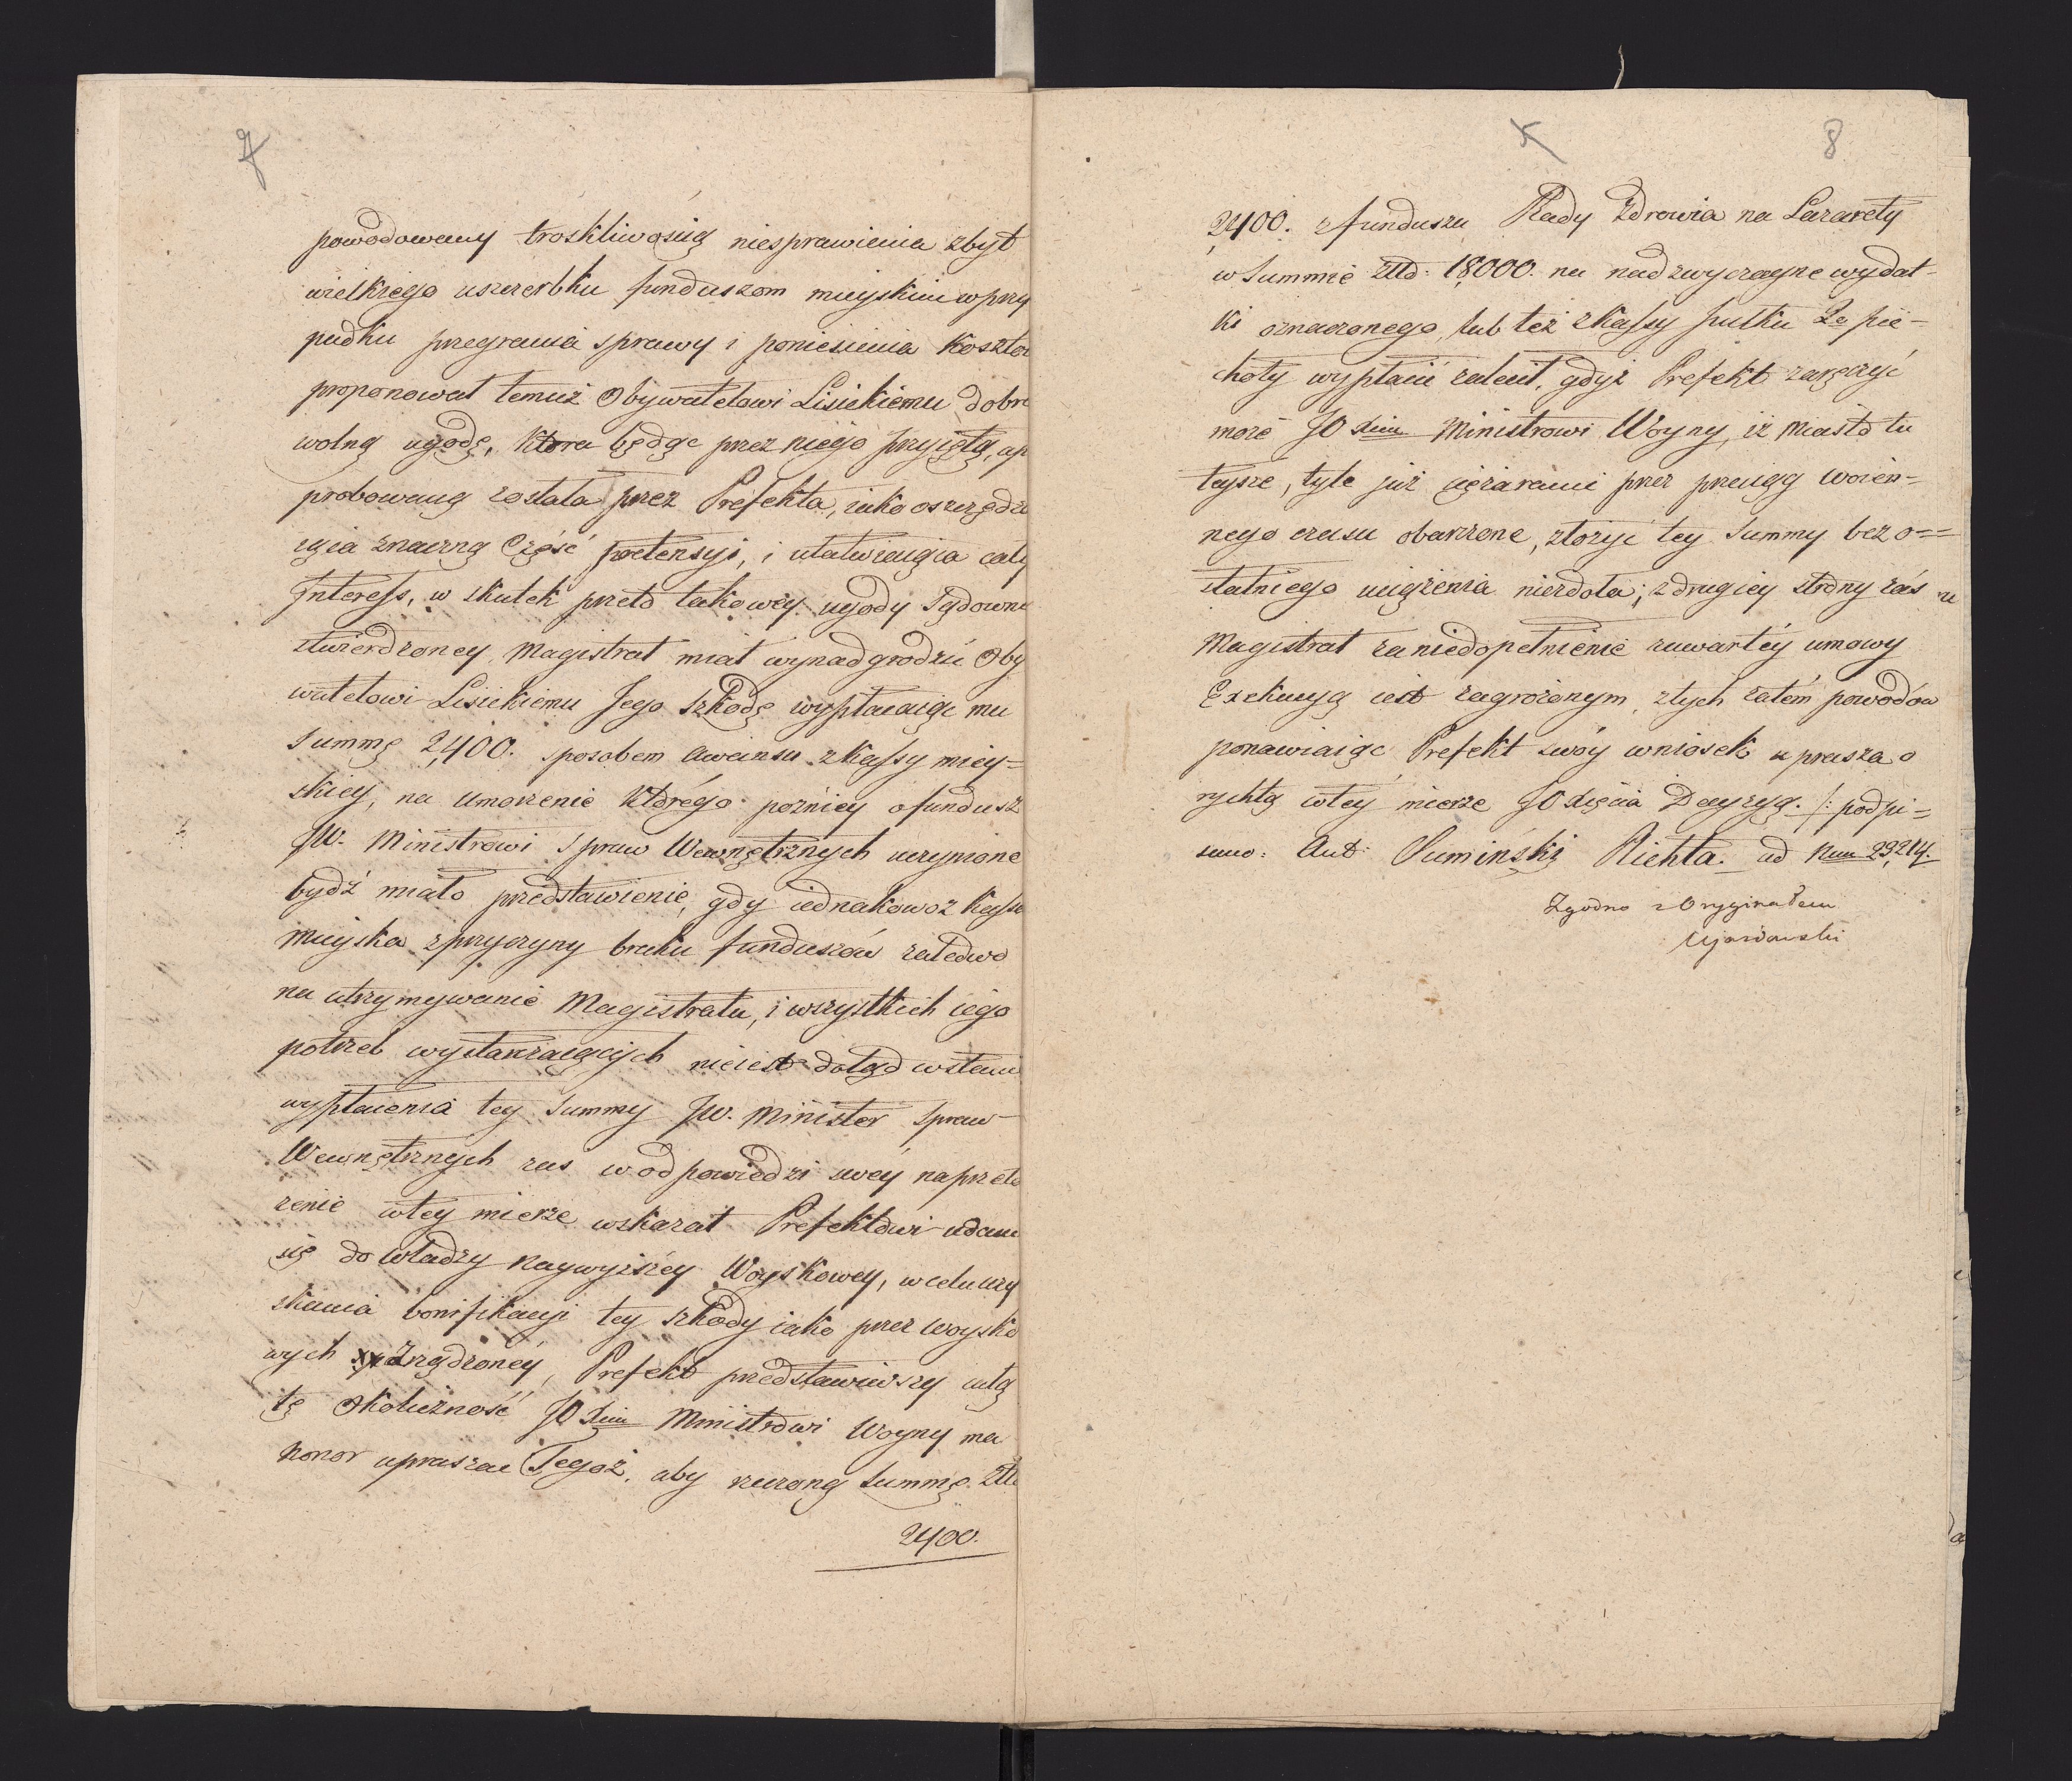 7
powodowany troskliwością niesprawienia zbyt
wielkiego uszczerbku funduszom mieyskim w przy
padku przegrania sprawy i poniesienia kosztów
proponował temuż Obywatelowi Lisickiemu dobro
wolną ugodę, która będąc przez niego przyiętą, ap
probowaną została przez Prefekta, iako oszczędza
iąca znaczną Część pretensyi, i ułatwiaiąca cały
Interess, w skutek przeto takowéy ugody Sądownie
stwierdzoney, Magistrat miał wynadgrodzić Oby
watelowi Lisickiemu Jego szkodę wypłacaiąc mu
Summę 2,400. sposobem awansu z Kassy miey=
skiey, na umorzenie którégo pozniey o fundusz
JW. Ministrowi Spraw Wewnętrznych uczynione
bydź miało przedstawienie, gdy iednakowoż Kassa
Mieyska z przyczyny braku funduszów zaledwo
na utrzymywanie Magistratu, i wszystkich iego
potrzeb wystarczaiących nieiest dotąd w stanie
wypłacenia tey Summy JW. Minister Spraw
Wewnętrznych zas w odpowiedzi swéy na przeło
żenie w téy mierze wskazał Prefektowi udanie
się do władzy naywyższéy Woyskowey, w celu uzy
skania bonifikacyi tey szkody iako przez woysko
wych zrządzonéy, Prefekt przedstawiwszy całą
tę okoliczność JO Xciu Ministrowi Woyny ma
honor upraszać Tegoż, aby rzeczoną Summę Złł.
2400.
8
2,400. z funduszu Rady Zdrowia na Lazarety
w Summie Złłd. 18,000. na nadzwyczayne wydat-
ki oznaczonego, lub też z kassy pułku 2o pie-
choty wypłacić zalecił, gdyż Prefekt zaręczyć
może JO Xciu Ministrowi Woyny, iż Miasto tu
teysze, tyle już ciężarami przez przeciąg woien-
nego czasu obarczone, złożyć tey Summy bez o=
statniego uciążenia niezdoła; z drugiey strony zaś
Magistrat za niedopełnienie zawartéy umowy
Exekucyą iest zagrożonym, z tych zatém powodów
ponawiaiąc Prefekt swóy wniosek uprasza o
rychłą w téy mierze JO Xięcia Decyzyą. /: podpi=
sano: Ant: Sumiński Richta. ad Num 29,214.
Zgodno z Oryginałem
Ujazdowski